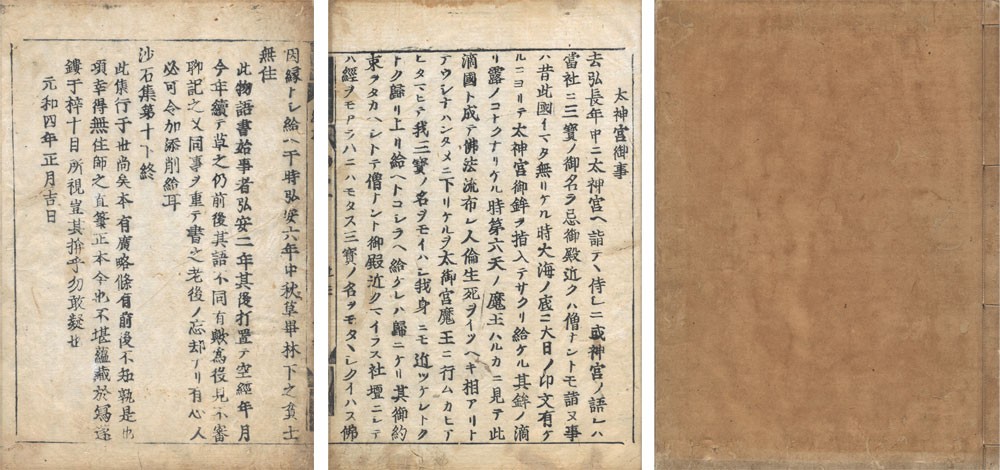 太神宮御事
去弘長年中ニ太神宮ヘ詣テヽ侍シニ或神官ノ語シハ
當社ニ三寶ノ御名ヲ忌御殿近クハ僧ナントモ詣ヌ事
ハ昔此國イマタ無リケル時大海ノ底ニ大日ノ印文有ケ
ルニヨリテ太神宮御鉾ヲ指入テサクリ給ケル其鉾ノ滴
リ露ノコトクナリケル時第六天ノ魔王ハルカニ見テ此
滴國ト成テ佛法流布シ人倫生死ヲイツヘキ相アリト
テウシナハンタメニ下リケルヲ太御宮魔王ニ行ムカヒア
ヒタマヒテ我三寶ノ名ヲモイハシ我身ニモ近ツケシトク
トク歸リ上リ給ヘトコシラヘ給ケレハ歸ニケリ其御約
束ヲタカヘシトテ僧ナント御殿近クマイラス社壇ニシテ
ハ經ヲモアラハニハモタス三寶ノ名ヲモタヽシクイハス佛
因縁トシ給ヘ于時弘安六年中秋草畢林下之貧士
無住
此物語書始事者弘安二年其後打置テ空經年月
今年續テ草之仍前後其語不同有歟為後見不審
聊記之又同事ヲ重テ書之老後ノ忘却ナリ有心人
必可令加添削給耳
沙石集第十下終
此集行于世尚矣本有廣略條有前後不知孰是也
頃幸得無住師之直筆正本今也不堪蘊藏於遂
鏤于梓十目所視豈其揜乎勿敢疑也
元和四年正月吉日